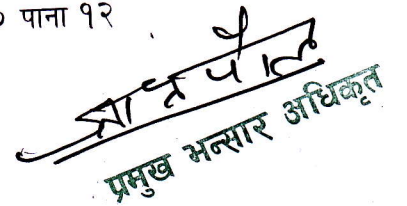 पाना १२
प्रमुख भन्सार अधिकृत